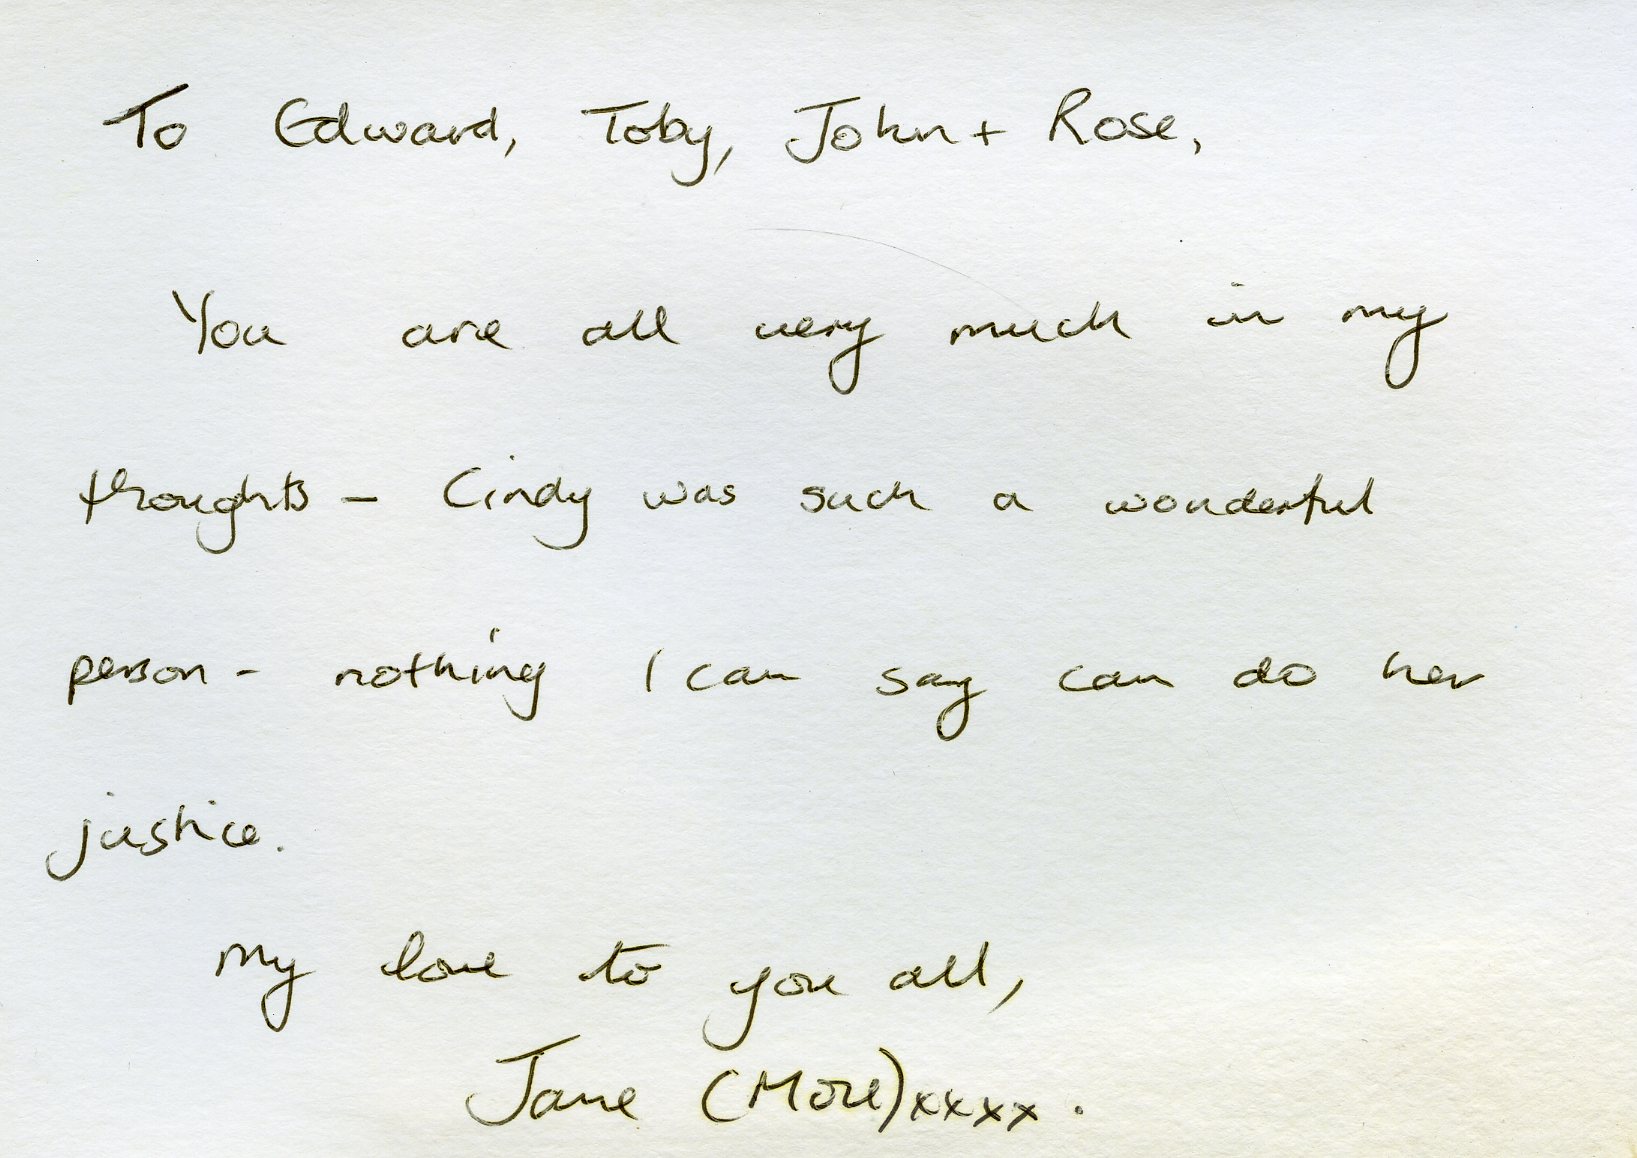 To Edward, Toby, John + Rose,
You are all very much in my
thoughts – Cindy was such a wonderful
person – nothing I can say can do her
justice.
My love to you all,
Jane (More) xxxx.